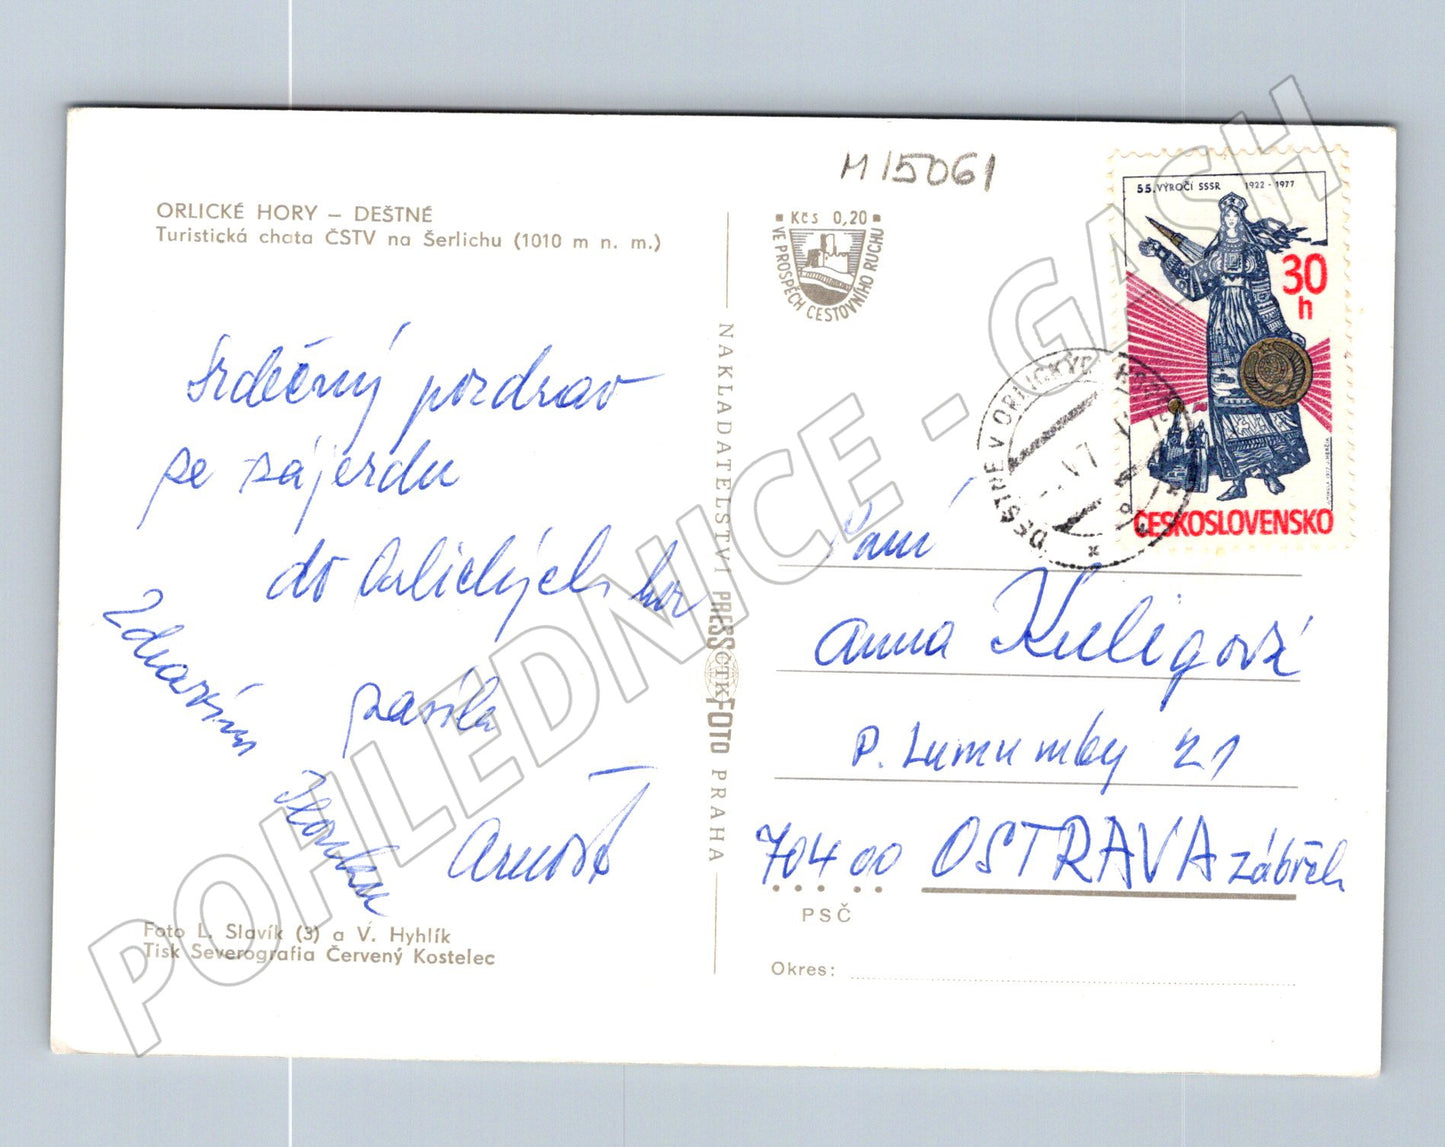 M 15061
ORLICKÉ HORY – DEŠTNÉ
Turistická chata ČSTV na Šerlichu (1010 m n. m.)
Kčs 0,20
VE PROSPĚCH CESTOVNÍHO RUCHU
55. VÝROČÍ SSSR 1922 - 1977
30
h
ČESKOSLOVENSKO
DEŠTNÉ V ORLICKÝCH
Srdečný pozdrav
ze zájezdu
do Orlických hor
zasílá
Arnošt
Zdravím
NAKLADATELSTVÍ PRESSFOTO PRAHA
ČTK
Paní
Anna Kuligová
P. Lumumby 21
704 00 OSTRAVA Zábřeh
PSČ
Okres:
Foto L. Slavík (3) a V. Hyhlík
Tisk Severografia Červený Kostelec
POHLEDNICE - GASH